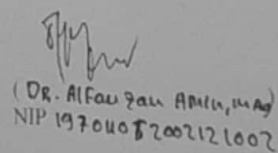 (DR. Alfauzan Amin, M.Ag)
NIP 197011052002121002